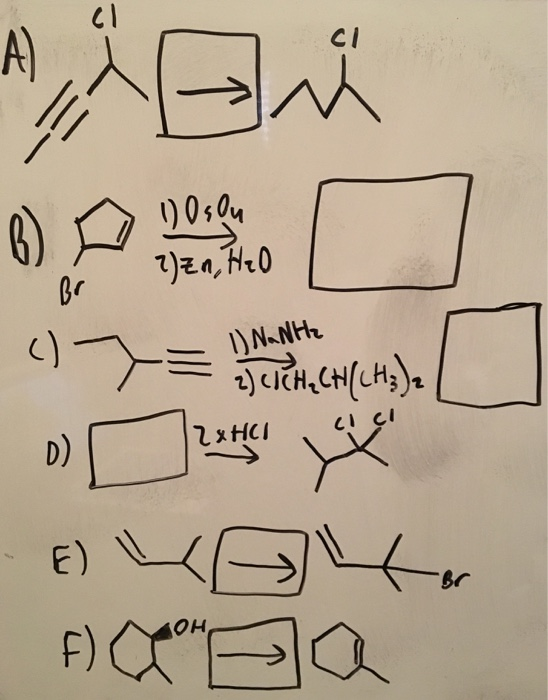 A) Cl Cl
B) Br 1) OsO4
2) Zn, H2O
C) 1) NaNH2
2) ClCH2CH(CH3)2
D) 2xHCl Cl Cl
E) Br
F) OH